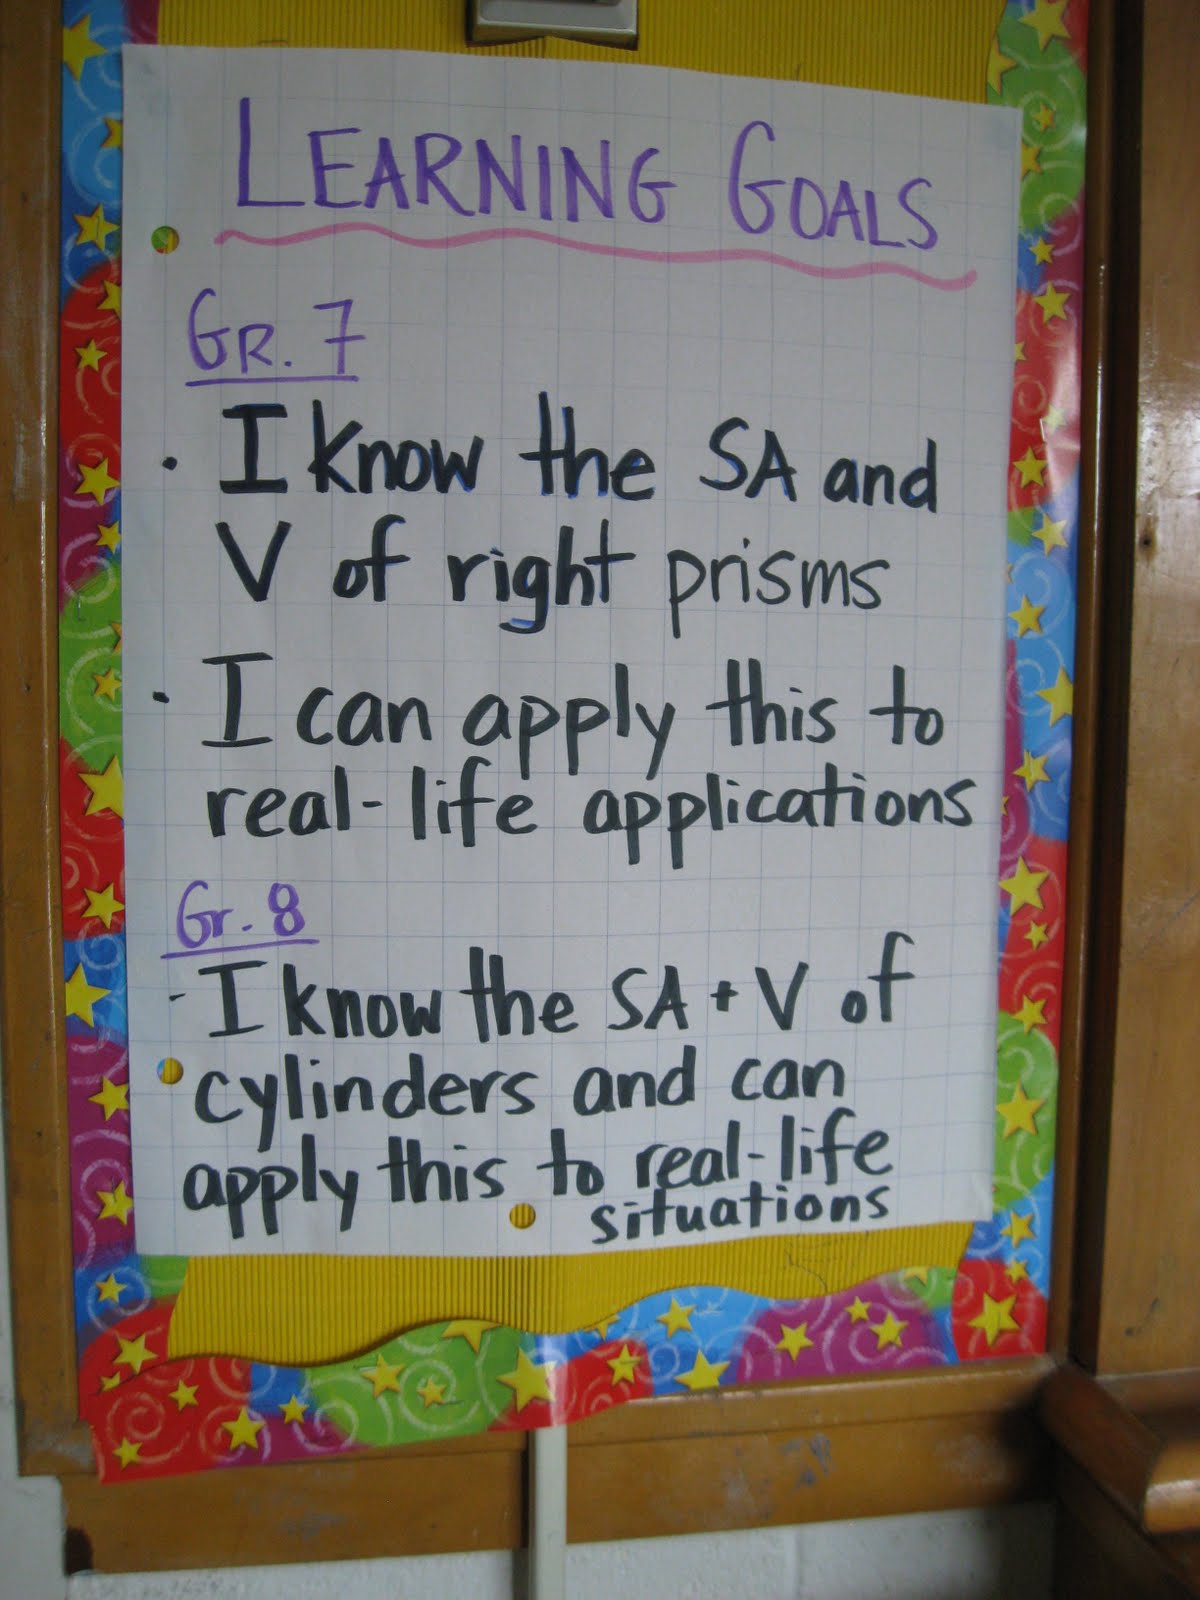 LEARNING GOALS
GR. 7
• I know the SA and
V of right prisms
• I can apply this to
real-life applications
Gr. 8
- I know the SA + V of
cylinders and can
apply this to real-life
situations